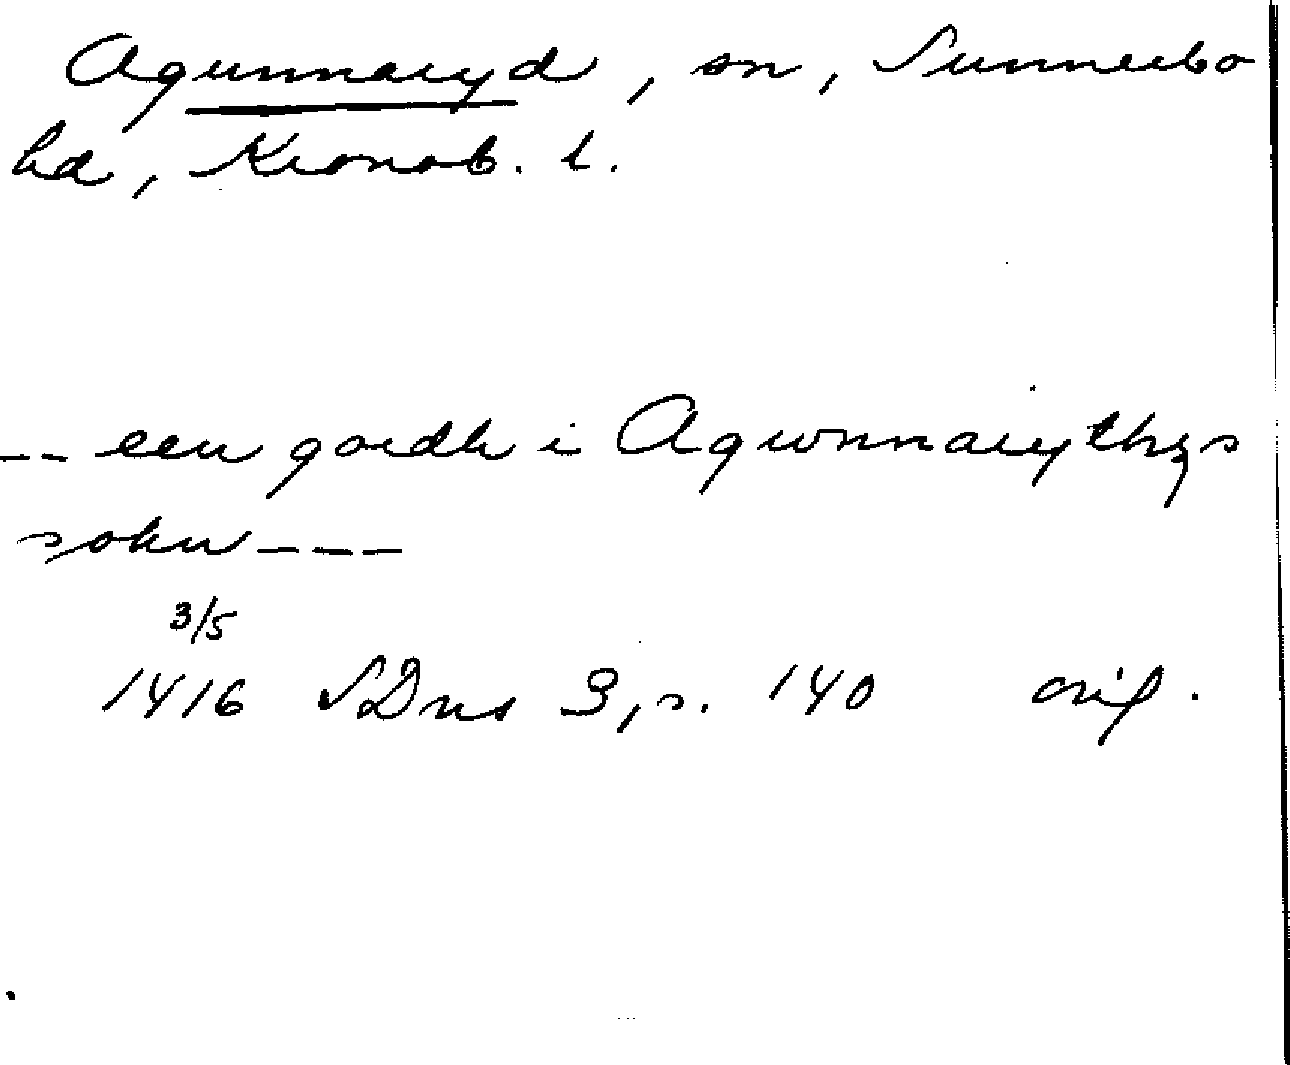 Agunnaryd, sn, Sunnerbo
hd, Kronob. l.
-- een gardh i Agwnnarythzs
sokn ---
3/5
1416 SDns 3, s. 140 orig.